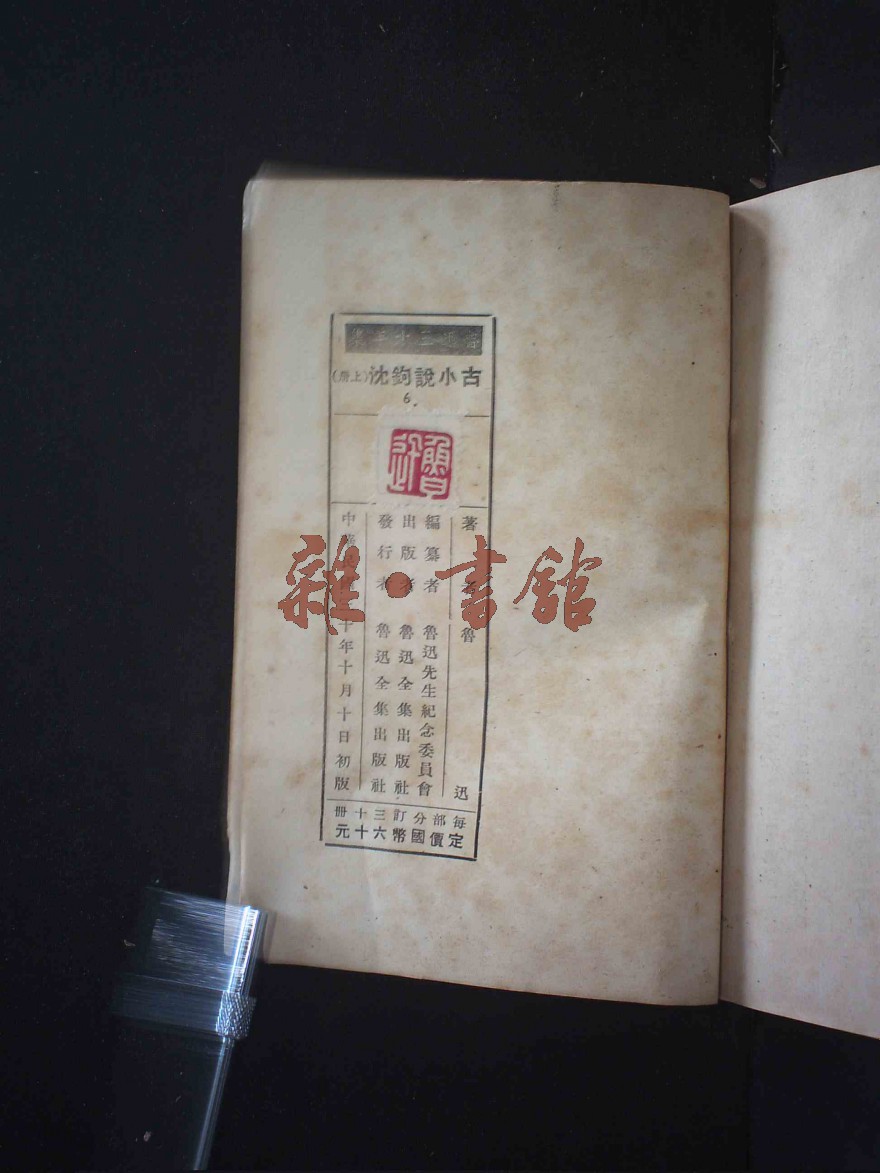 魯迅三十年集
古小說鉤沈(上冊)
6.
魯迅
著者 魯迅
編纂者 魯迅先生紀念委員會
出版者 魯迅全集出版社
發行者 魯迅全集出版社
中華民國三十年十月十日初版
每部分訂三十冊
定價國幣六十元
雜·書館